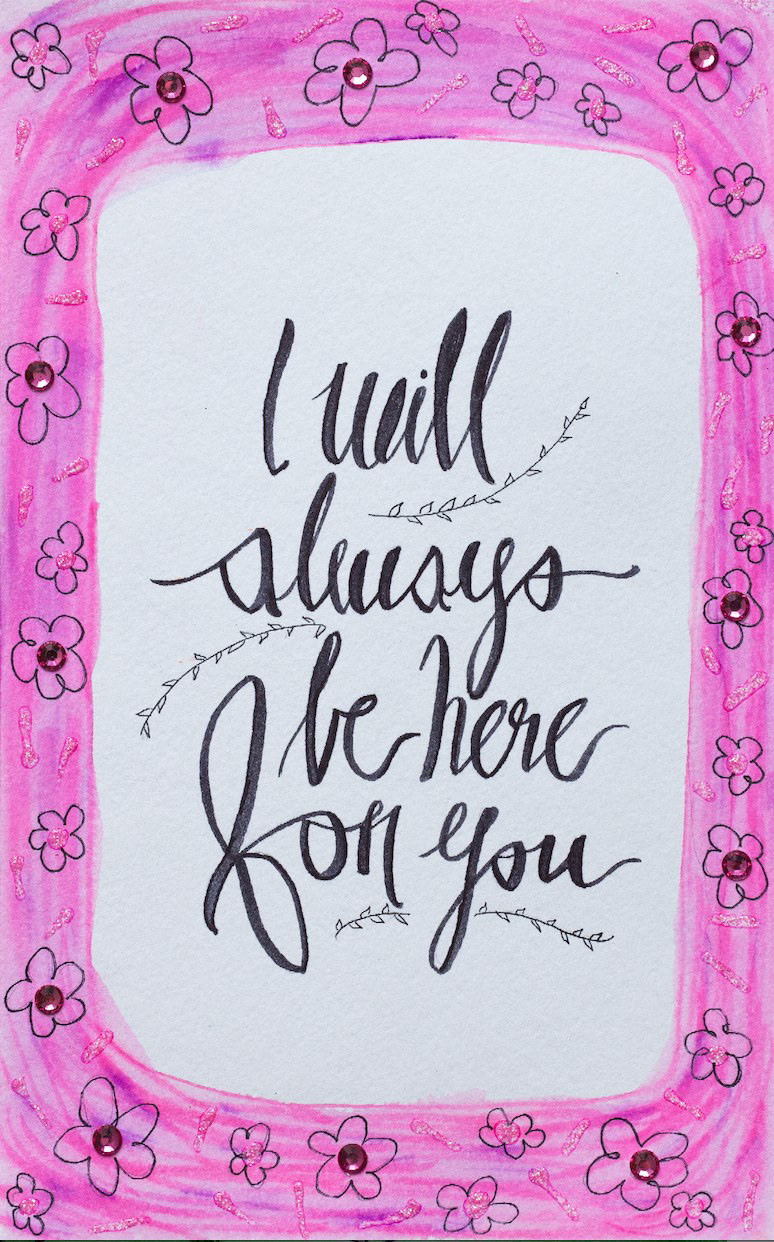 I will
always
be here
for you